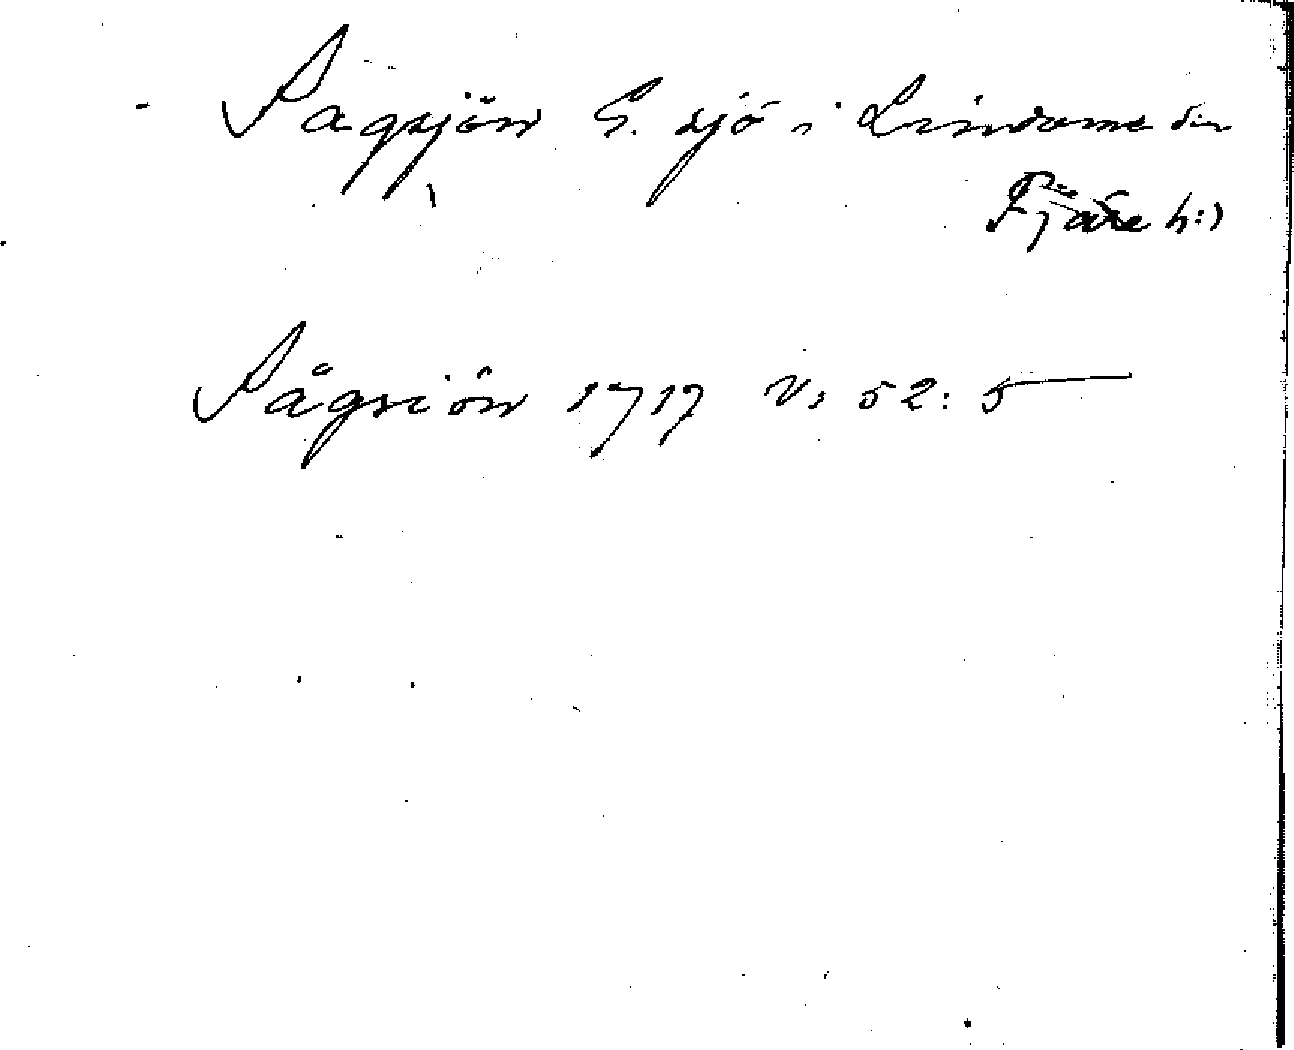 Sagsjön S. sjö i Lindome sn
Fjäre h:)
Sågsiön 1717 V: 52: 5